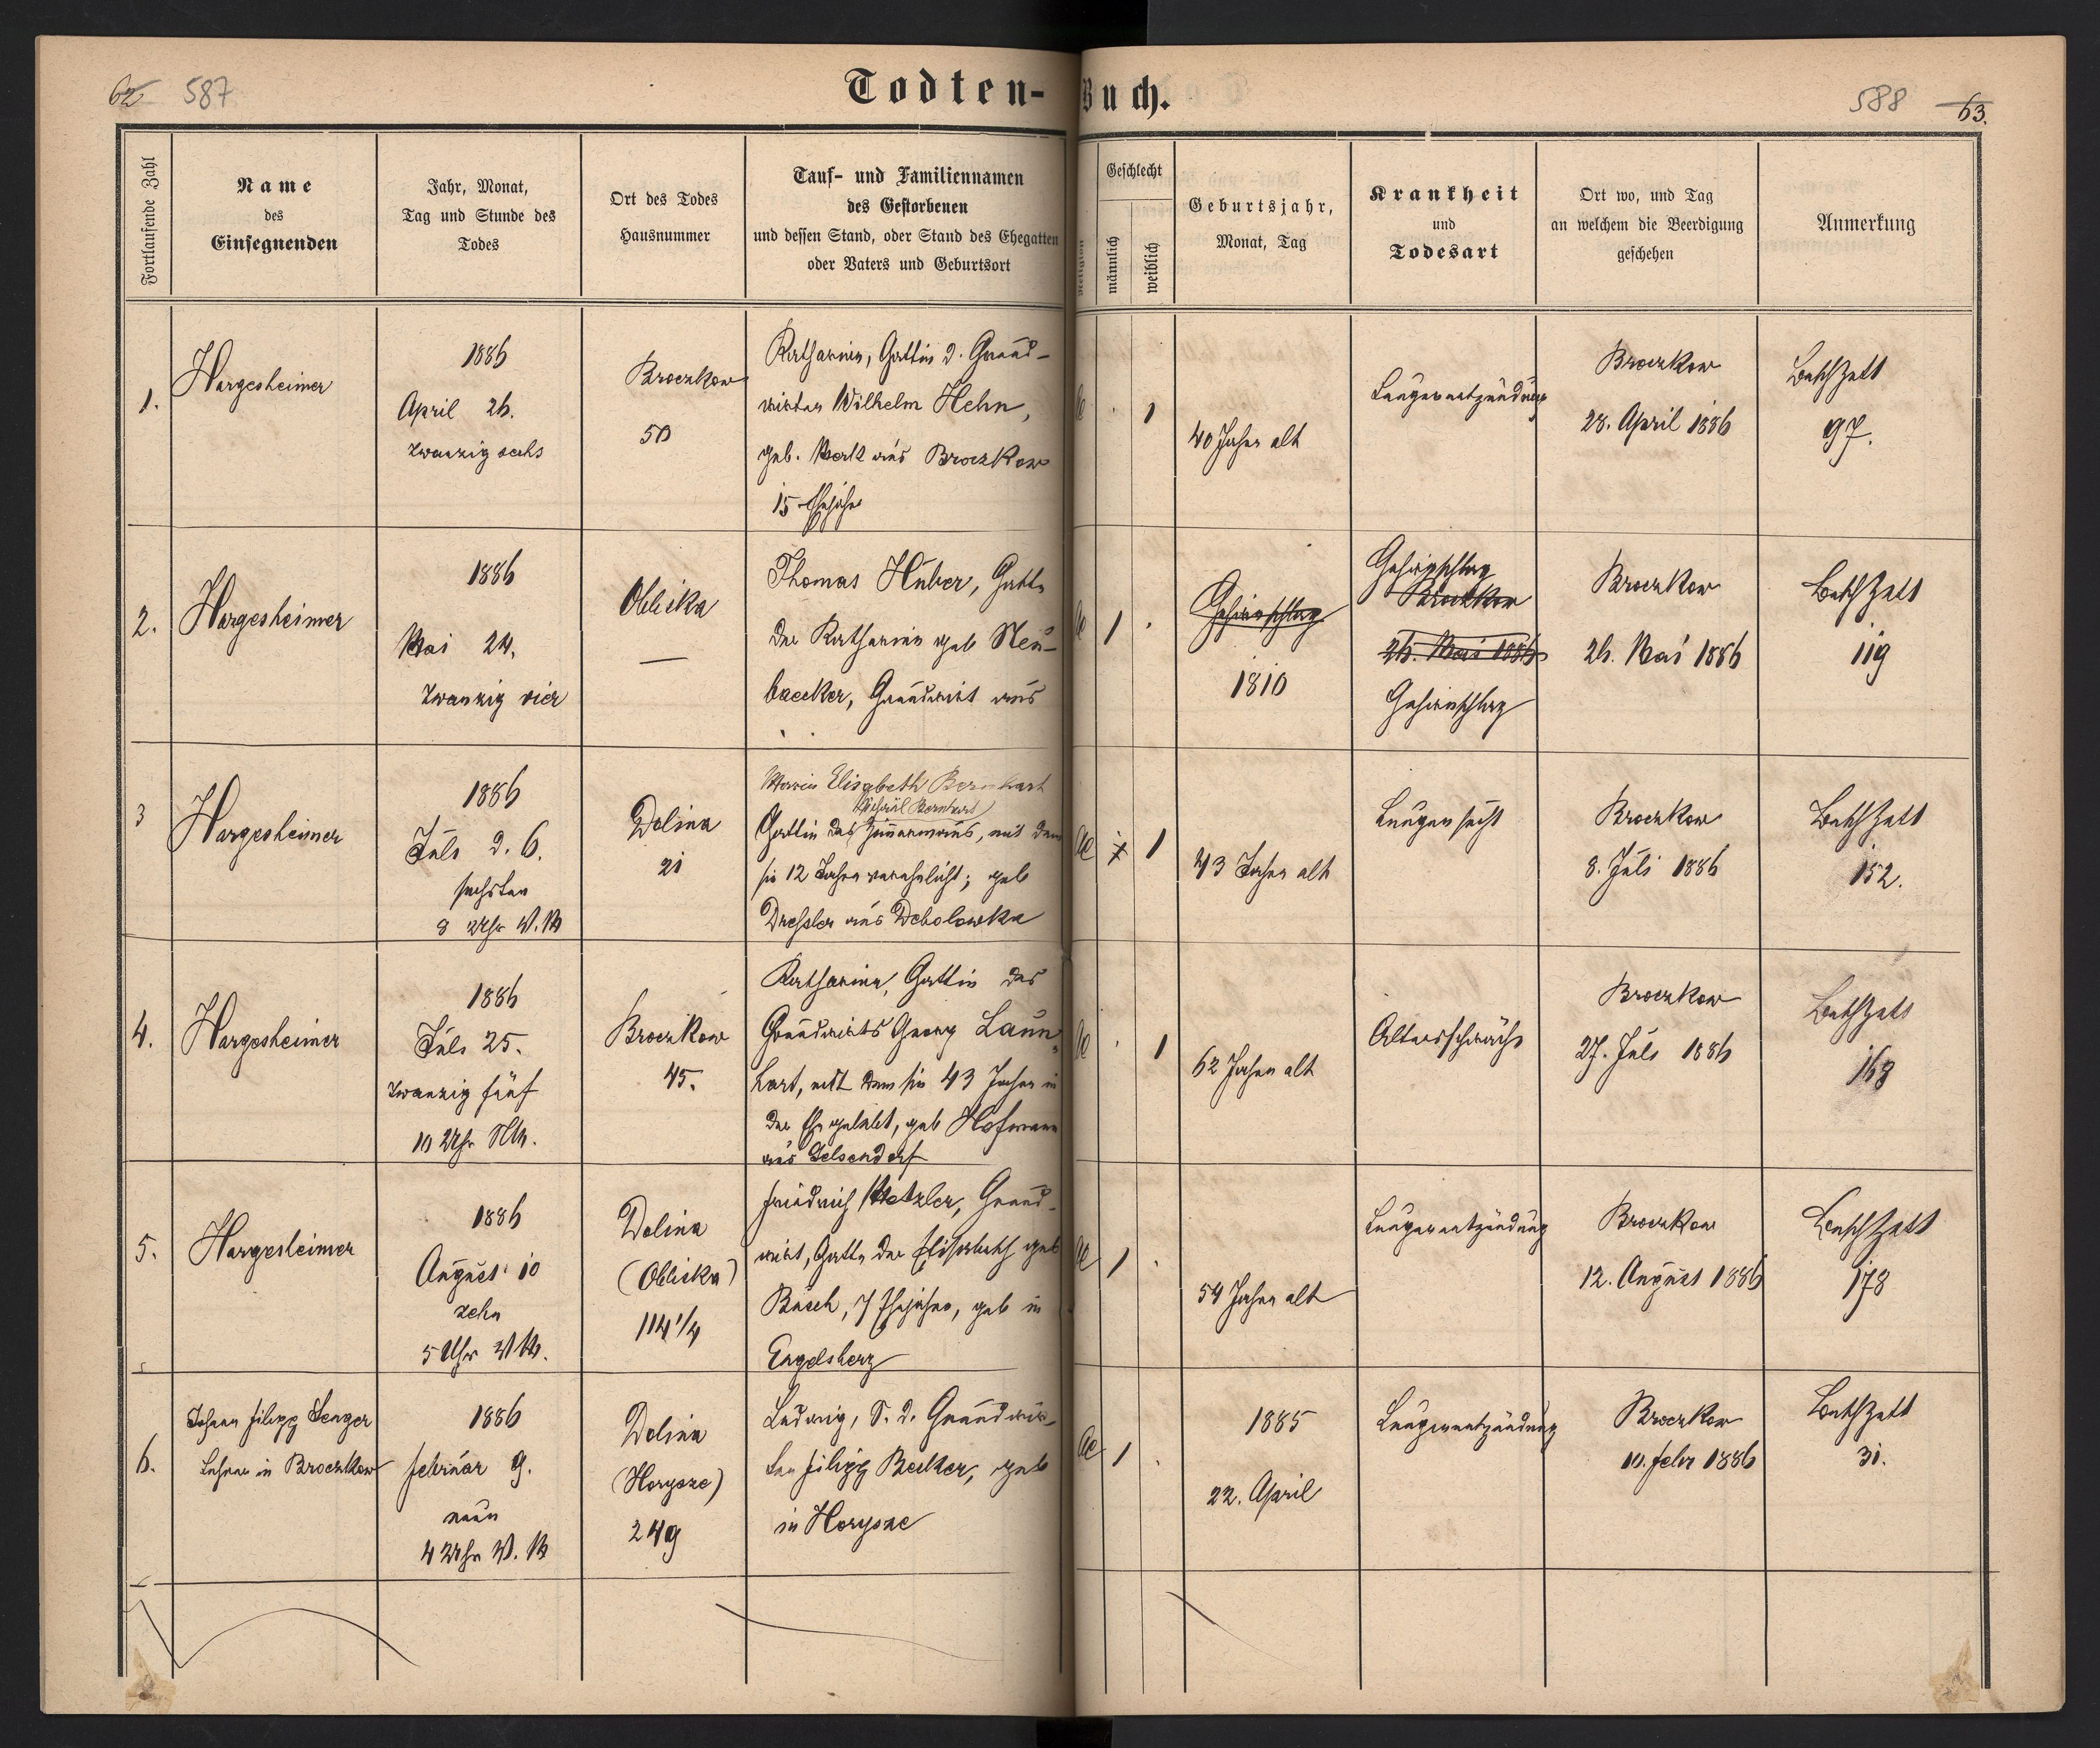 62 587
Todten-Buch.
588 63.
Fortlaufende Zahl
Name
des
Einsegnenden
Jahr, Monat,
Tag und Stunde des
Todes
Ort des Todes
Hausnummer
Tauf- und Familiennamen
des Gestorbenen
und dessen Stand, oder Stand des Ehegatten
oder Vaters und Geburtsort
Religion
Geschlecht
männlich
weiblich
Geburtsjahr,
Monat, Tag
Krankheit
und
Todesart
Ort wo, und Tag
an welchem die Beerdigung
geschehen
Anmerkung
1.
Hargesheimer
1886
April 26.
zwanzig sechs
Broczkow
50
Katharina, Gattin d. Grund-
wirten Wilhelm Hehn,
geb. aus Broczkow
15 Ehejahre
1
40 Jahre alt
Lungenentzündung
Broczkow
28. April 1886
BeschZett
97.
2.
Hargesheimer
1886
Mai 24.
zwanzig vier
Obliska
—
Thomas Huber, Gatte
der Katharina geb Neu-
baecker, Grundwirt aus
1
Gehirnschlag
1810
Gehirnschlag
Broczkow
26. Mai 1886
Gehirnschlag
Broczkow
26. Mai 1886
BeschZett
119
3
Hargesheimer
1886
Juli d. 6.
sechsten
8 Uhr V. M
Dolina
21
Maria Elisabeth Bernhart
Michael Bernhart
Gattin des Zimmermanns, mit dem
sie 12 Jahre verehelicht; geb
Dressler aus Debolowka
1
43 Jahre alt
Lungensucht
Broczkow
8. Juli 1886
BeschZett
152.
4.
Hargesheimer
1886
Juli 25.
zwanzig fünf
10 Uhr NM.
Broczkow
45.
Katharina, Gattin des
Grundwirts Georg Laun-
hart, mit dem sie 43 Jahre in
der Ehe gelebt, geb Hofmann
aus Gelsendorf
1
62 Jahre alt
Altersschwäche
Broczkow
27. Juli 1886
BeschZett
168
5.
Hargesheimer
1886
August 10
zehn
5 Uhr VM.
Dolina
(Obliska)
114 1/4
Friedrich Metzler, Grund-
wirt, Gatte der Elisabeth geb
Busch, 7 Ehejahre, geb in
Engelsberg
1
54 Jahre alt
Lungenentzündung
Broczkow
12. August 1886
BeschZett
178
6.
Johann Filipp Senger
Lehrer in Broczkow
1886
Februar 9.
neun
4 Uhr V. M
Dolina
(Horysze)
249
Ludwig, S. d. Grundwir-
ten Filipp Becker, geb
in Horysze
1
1885
22. April
Lungenentzündung
Broczkow
10. Febr 1886
BeschZett
31.